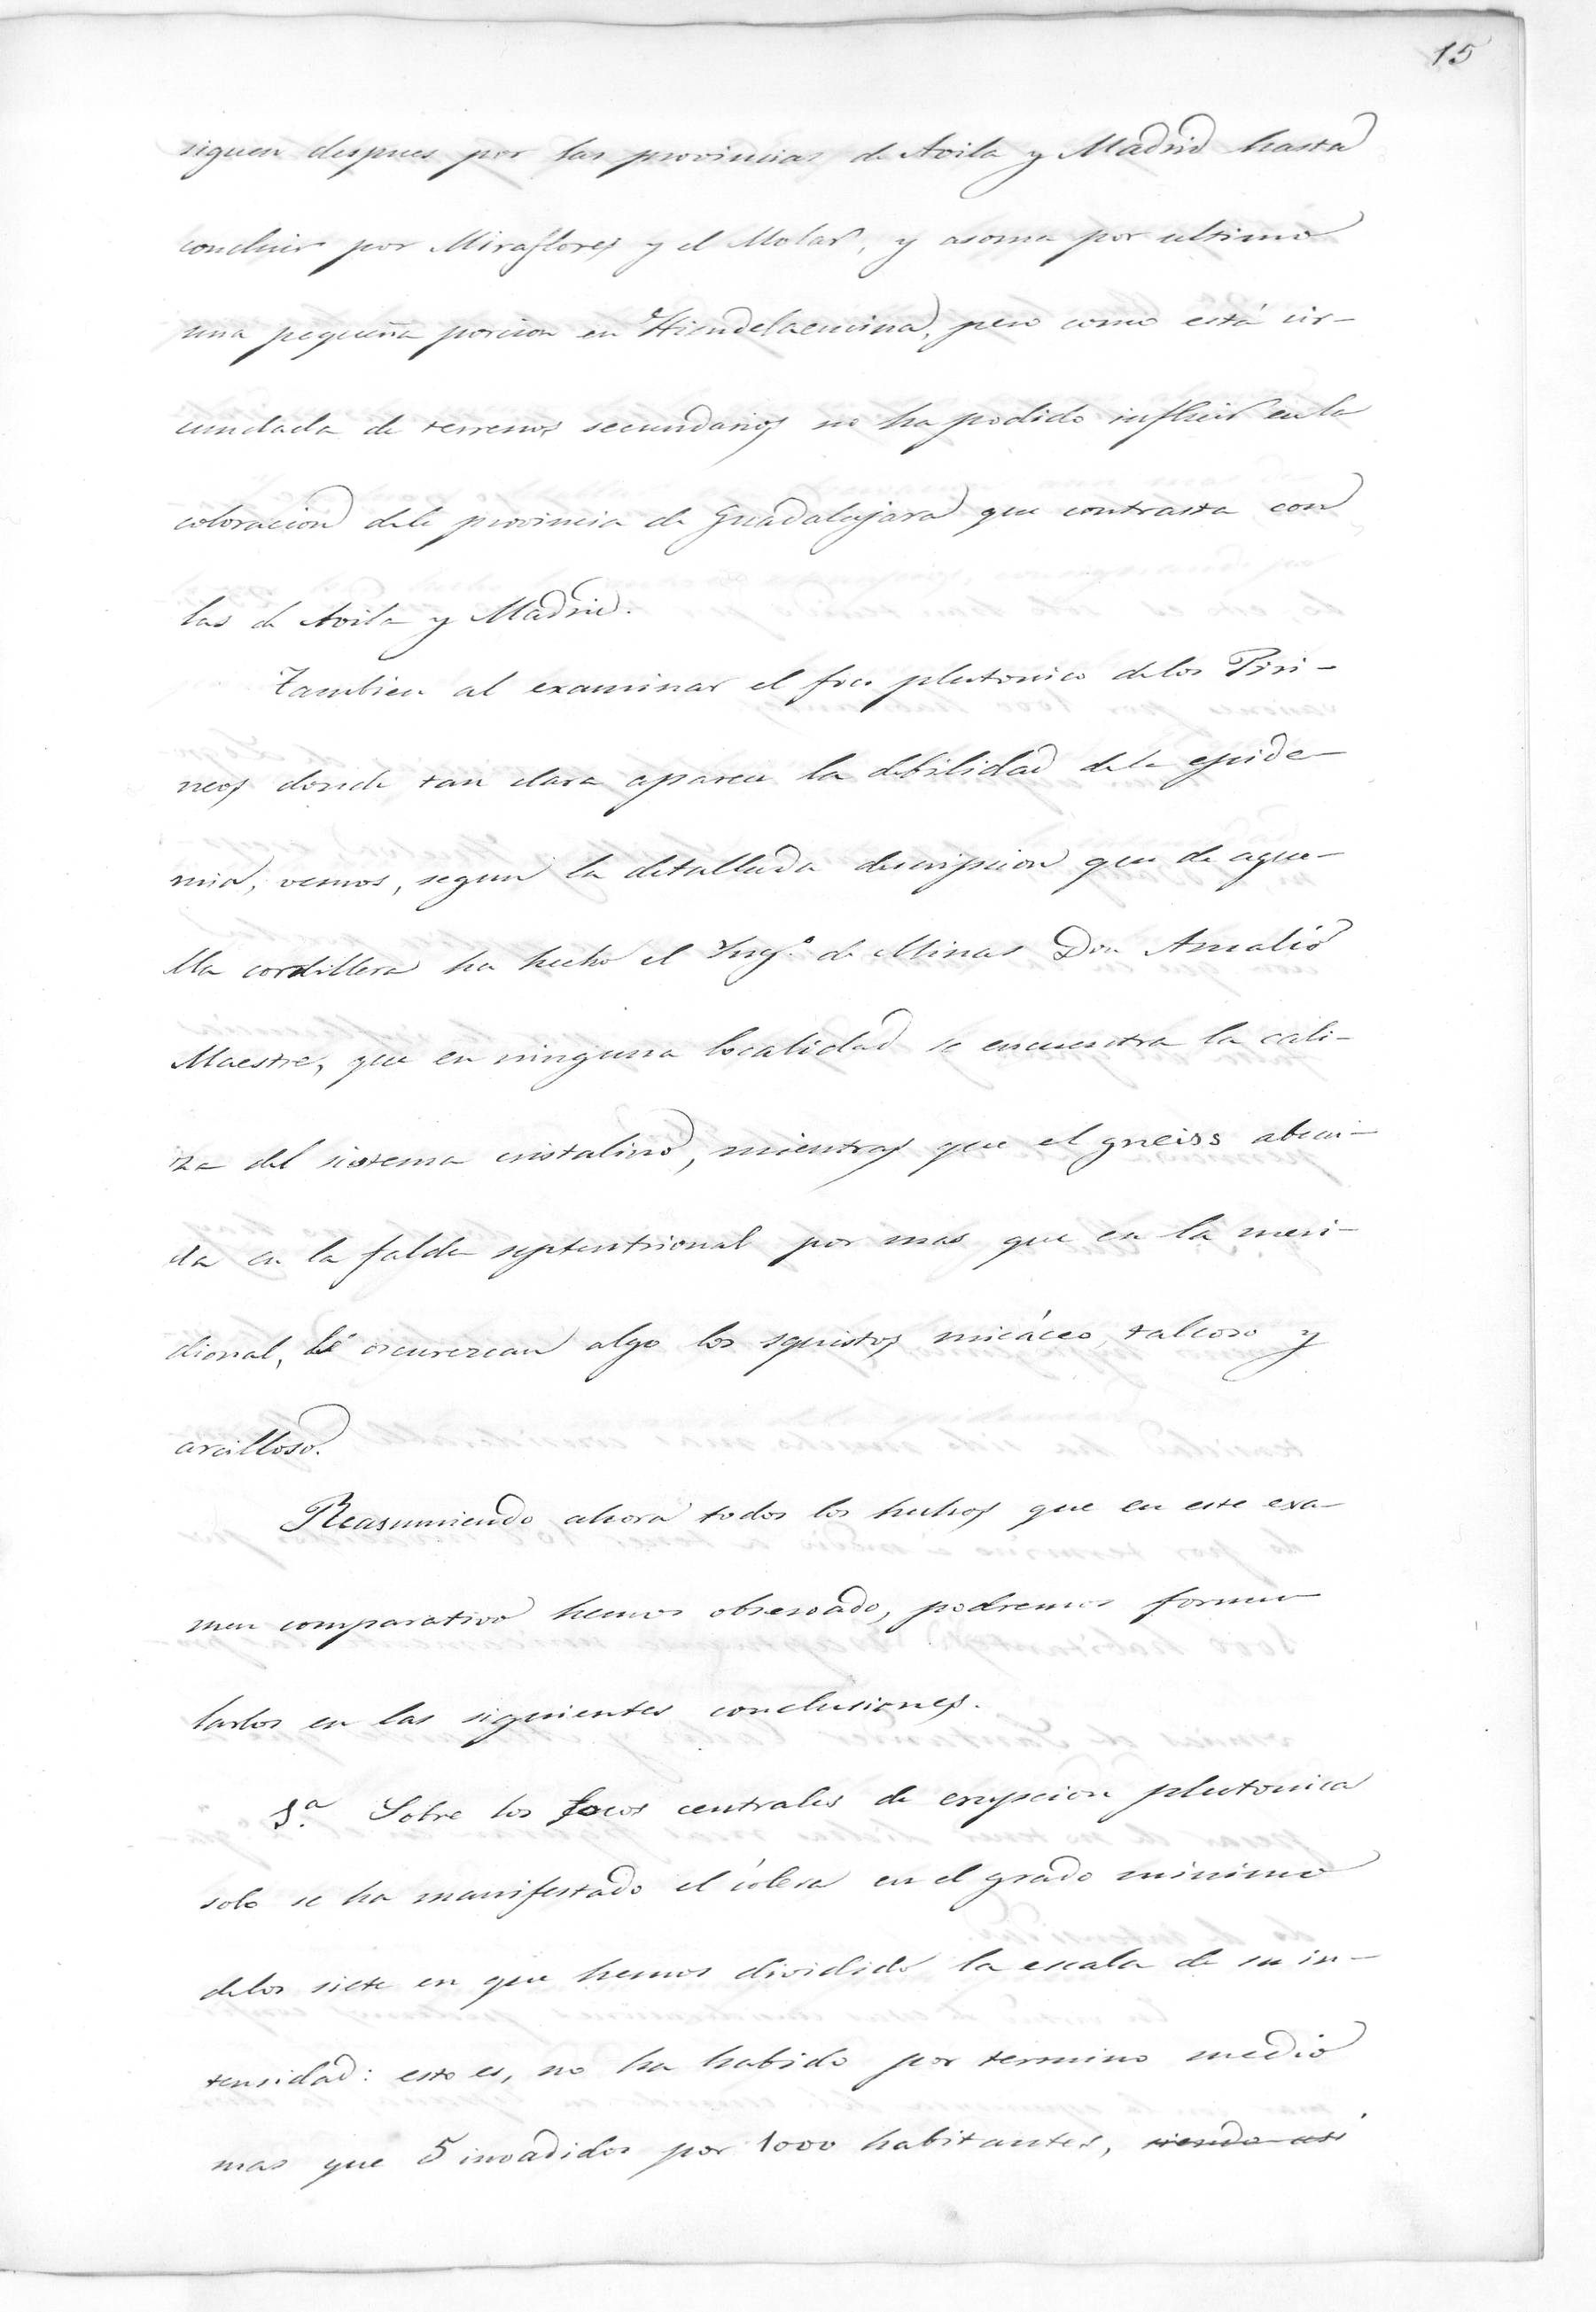 15
siguen despues por las provincias de Avila y Madrid hasta
concluir por Miraflores y el Molar, y asoma por ultimo
una pequeña porcion en Hiendelaencina, pero como está cir-
cundada de terrenos secundarios no ha podido influir en la
coloracion dela provincia de Guadalajara que contrasta con
las de Avila y Madrid.
Tambien al examinar el foco plutonico delos Piri-
neos donde tan clara aparece la debilidad dela epide-
mia, vemos, segun la detallada descripcion que de aque-
lla cordillera ha hecho el Ing.º de Minas Don Amalio
Maestre, que en ninguna localidad se encuentra la cali-
za del sistema cristalino, mientras que el gneiss abun-
da en la falda septentrional por mas que en la meri-
dional, le oscurezcan algo los squistos micáceo, talcoso y
arcilloso.
Reasumiendo ahora todos los hechos que en este exa-
men comparativo hemos observado, podremos formu-
larlos en las siguientes conclusiones.
1.ª Sobre los focos centrales de erupcion plutonica
solo se ha manifestado el cólera en el grado minimo
delos siete en que hemos dividido la escala de su in-
tensidad: esto es, no ha habido por termino medio
mas que 5 invadidos por 1000 habitantes, siendo asi